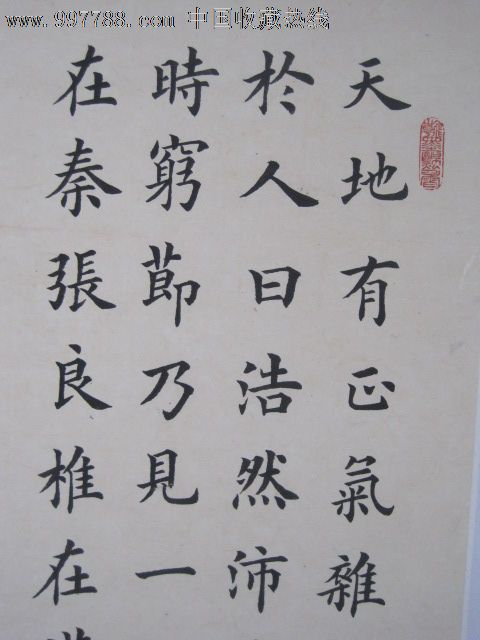 www.997788.com 中国收藏热线
天地有正氣雜
於人曰浩然沛
時窮節乃見一
在秦張良椎在